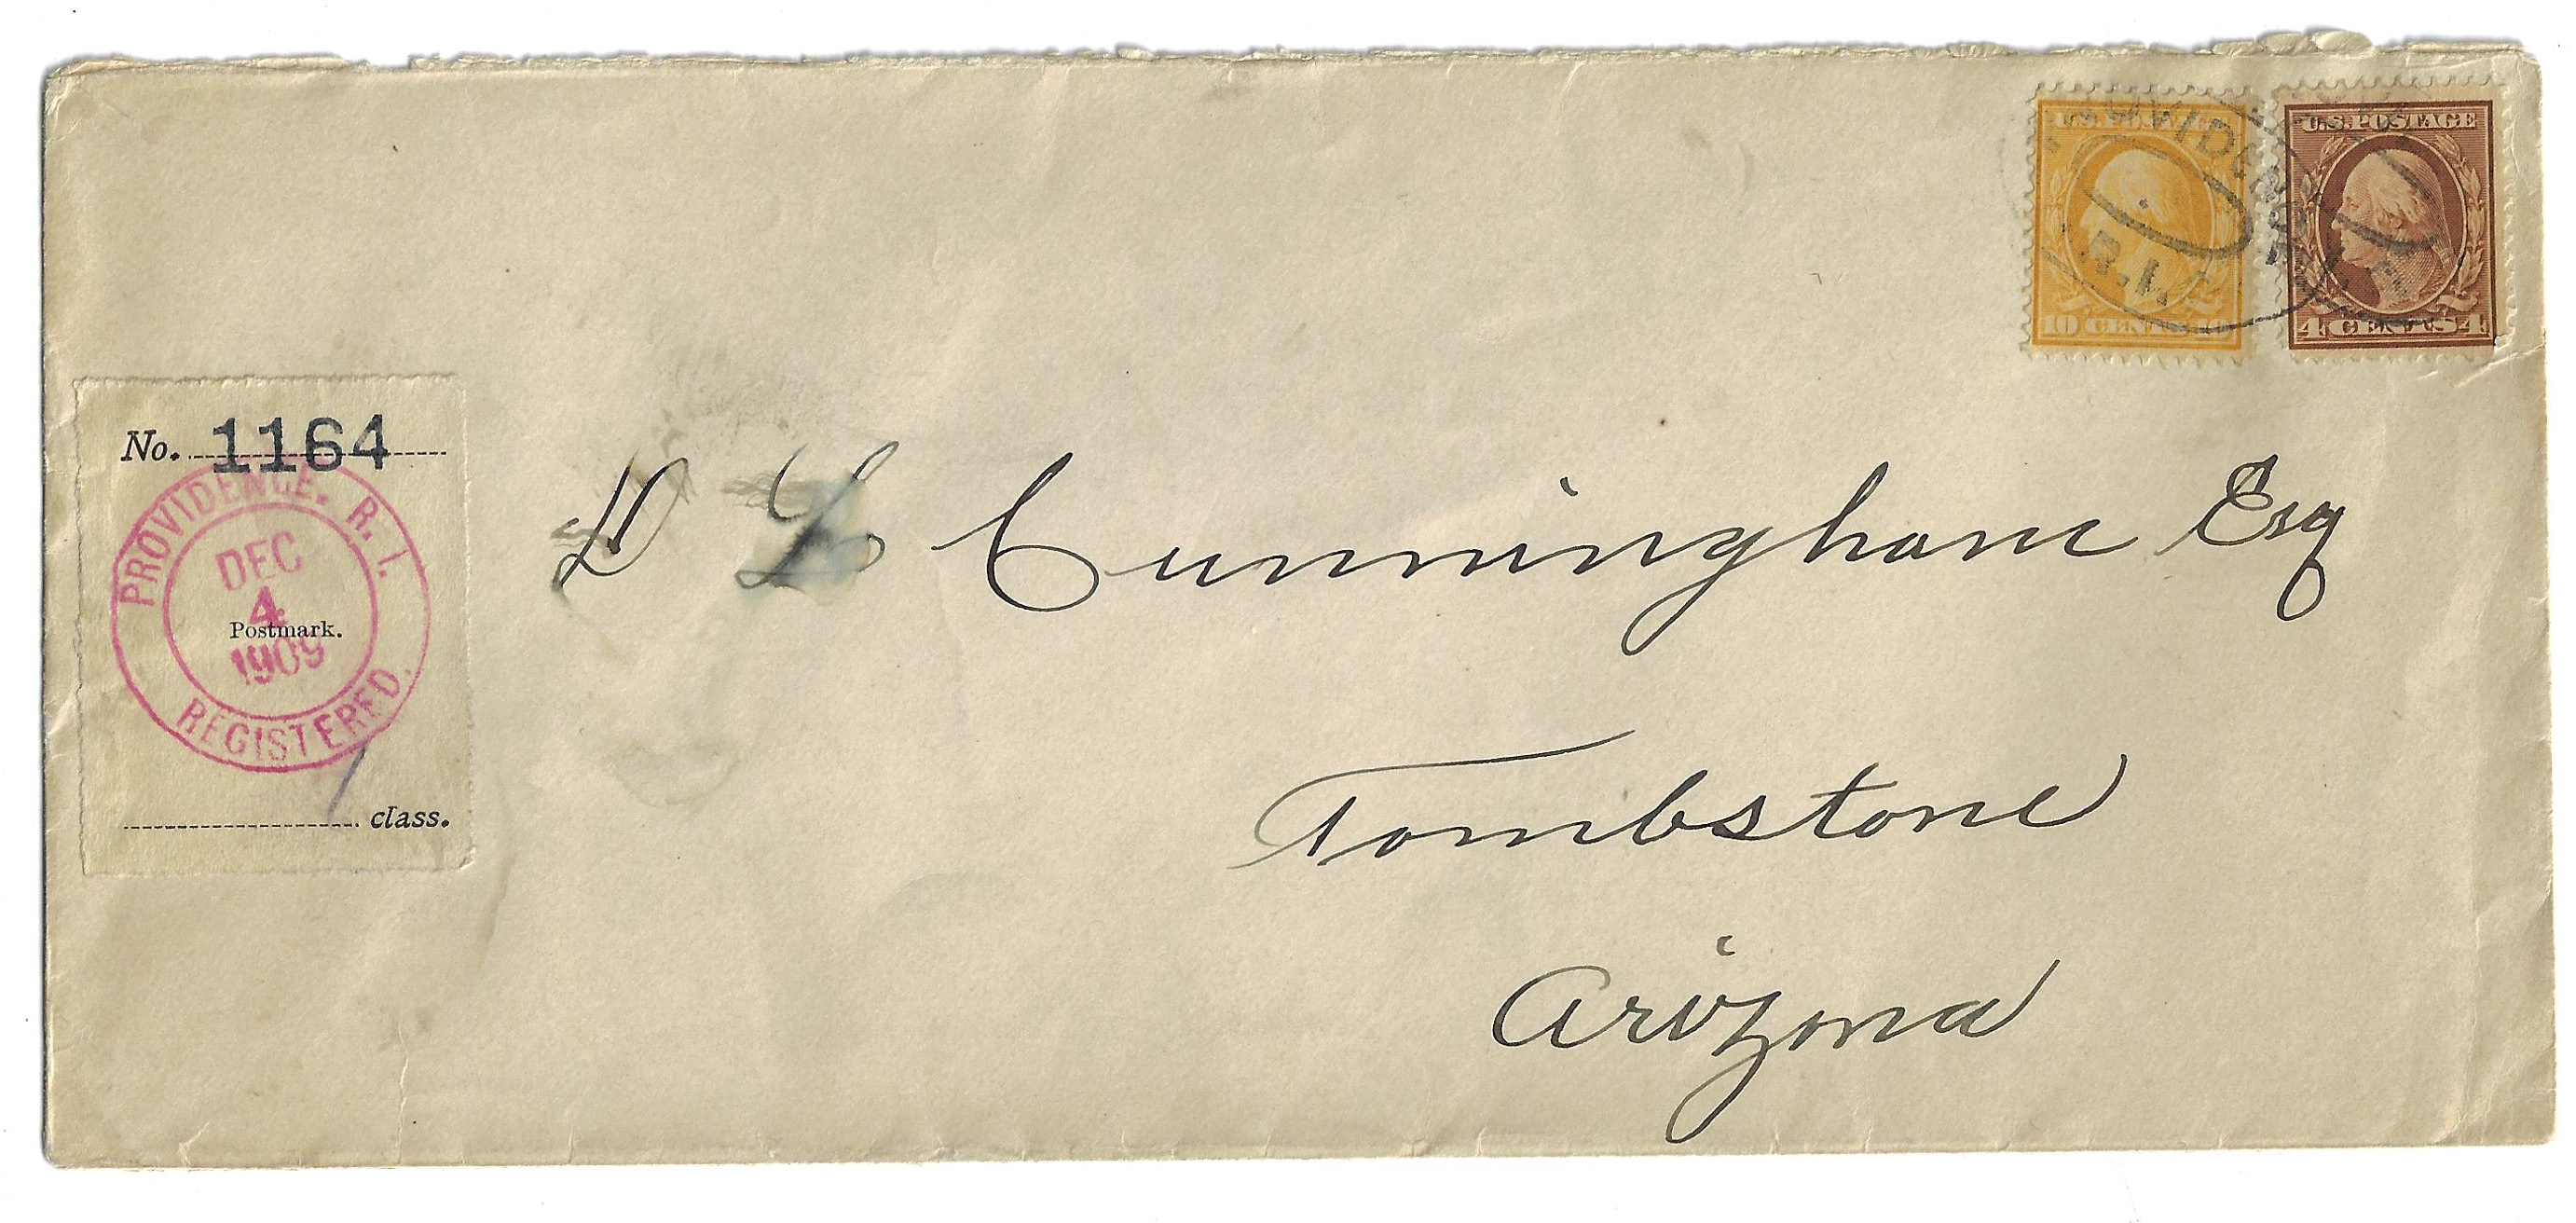 U.S. POSTAGE
10 CENTS 10
U.S. POSTAGE
4 CENTS 4
PROVIDENCE
R.I.
No. 1164
PROVIDENCE, R. I.
DEC
4
Postmark.
1909
REGISTERED.
1 class.
D L Cunningham Esq
Tombstone
Arizona